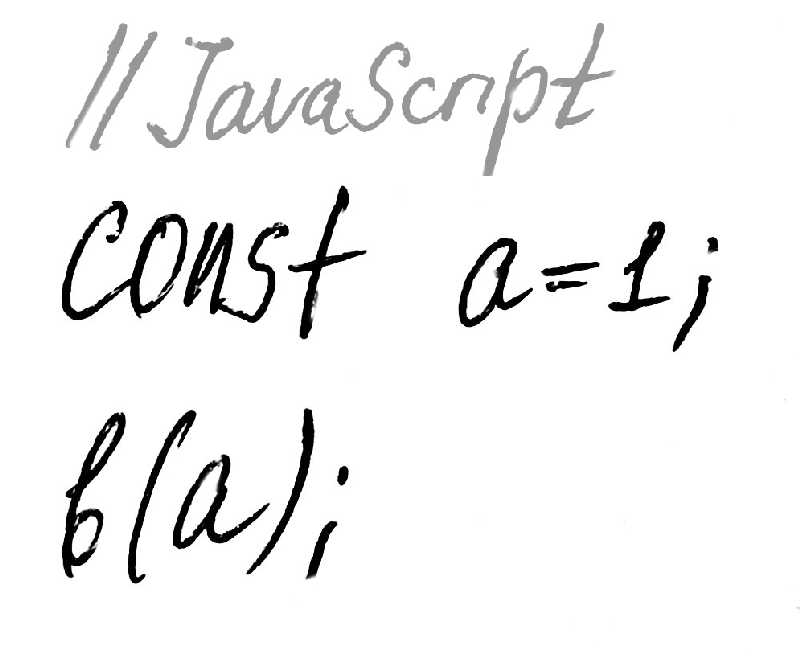 //JavaScript
const a=1;
b(a);